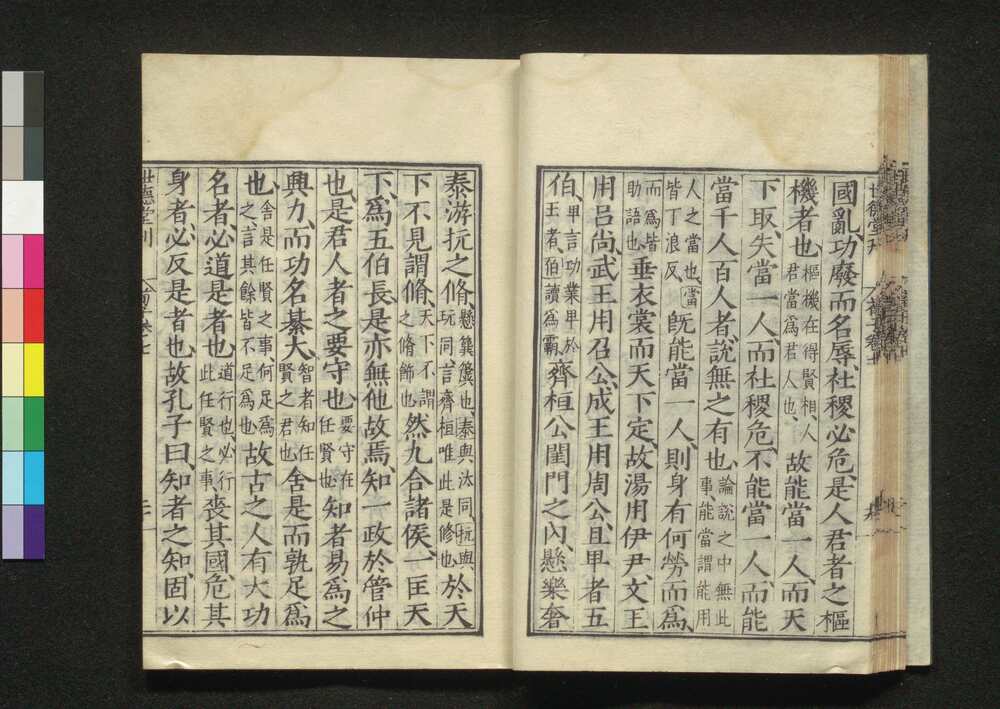 國亂、功廢而名辱、社稷必危、是人君者之樞
機者也、樞機在得賢相、人君當爲君人也、故能當一人、而天
下取、失當一人、而社稷危、不能當一人、而能
當千人百人者、說無之有也、論說之中無此事、能當謂能用
人之當也、當皆丁浪反、旣能當一人、則身有何勞而爲、
而爲皆助語也、垂衣裳而天下定、故湯用伊尹、文王
用呂尚、武王用召公、成王用周公旦、卑者五
伯、卑言功業卑於王者、伯讀爲霸、齊桓公閨門之內、懸樂奢
泰游抏之脩、懸簨簴也、泰與汰同、抏與玩同、言齊桓唯此是修也、於天
下不見謂脩、天下不謂之脩飾也、然九合諸侯、一匡天
下、爲五伯長、是亦無他故焉、知一政於管仲
也、是君人者之要守也、要守在任賢也、知者易爲之
興力、而功名綦大、智者知任賢之君也、舍是而孰足爲
也、舍是任賢之事、何足爲之、言其餘皆不足爲也、故古之人有大功
名者、必道是者也、道行也、必行此任賢之事、喪其國、危其
身者、必反是者也、故孔子曰、知者之知、固以
世德堂刊